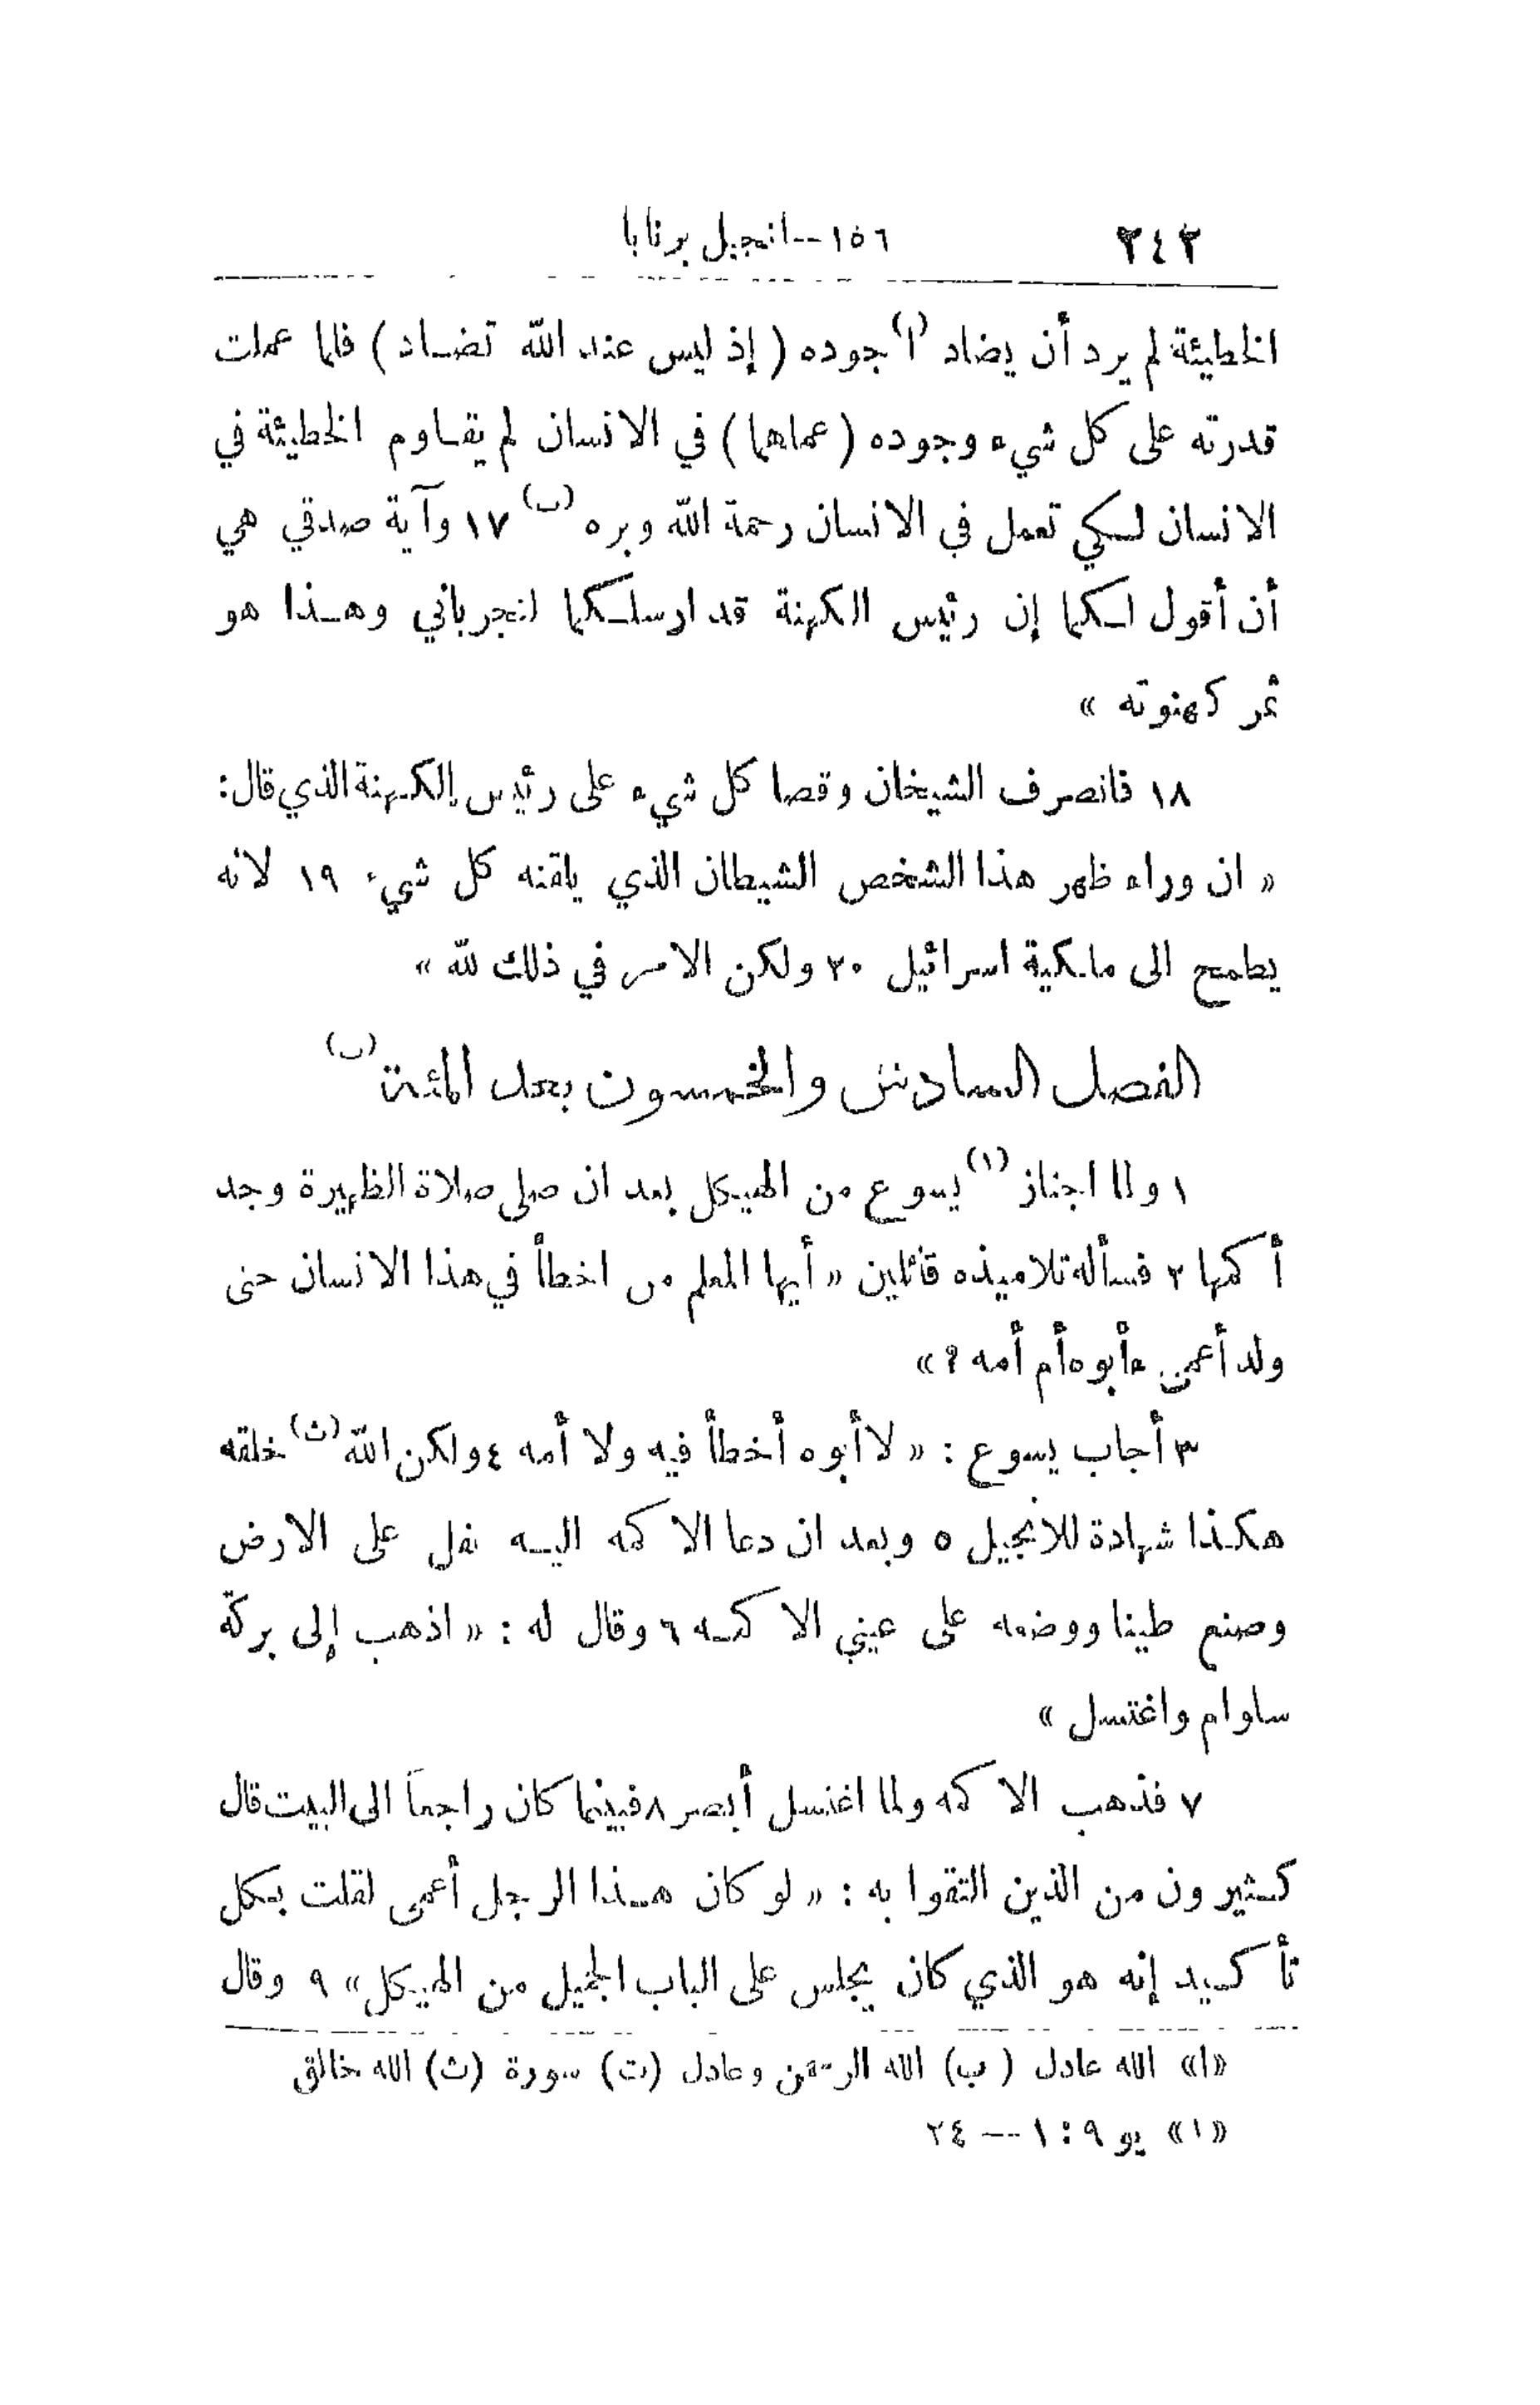 ٢٤٢ ١٥٦--انجيل برنابا
الخطيئة لم يرد أن يضاد (ا) جوده ( إذ ليس عند الله تضاد ) فلما عملت
قدرته على كل شيء وجوده ( عملهما ) في الانسان لم يقاوم الخطيئة في
الانسان لكي تعمل في الانسان رحمة الله وبره (ب) ١٧ وآية صدقي هي
أن أقول لكما إن رئيس الكهنة قد ارسلكما لتجرباني وهذا هو
ثمر كهنوته »
١٨ فانصرف الشيخان وقصا كل شيء على رئيس الكهنة الذي قال:
« ان وراء ظهر هذا الشخص الشيطان الذي يلقنه كل شيء ١٩ لانه
يطمح الى ملكية اسرائيل ٢٠ ولكن الامر في ذلك لله »
الفصل السادس والخمسون بعد المئة (ت)
١ ولما اجتاز (١) يسوع من الهيكل بعد ان صلى صلاة الظهيرة وجد
أكمها ٢ فسأله تلاميذه قائلين « أيها المعلم من اخطأ في هذا الانسان حتى
ولد أعمى ءأبوه أم أمه ؟ »
٣ أجاب يسوع : « لا أبوه أخطأ فيه ولا أمه ٤ ولكن الله (ث) خلقه
هكذا شهادة للانجيل ٥ وبعد ان دعا الاكمه اليه تفل على الارض
وصنع طينا ووضعه على عيني الاكمه ٦ وقال له : « اذهب إلى بركة
سلوام واغتسل »
٧ فذهب الاكمه ولما اغتسل أبصر ٨ فبينما كان راجعاً الى البيت قال
كثيرون من الذين التقوا به : « لو كان هذا الرجل أعمى لقلت بكل
تأكيد إنه هو الذي كان يجلس على الباب الجميل من الهيكل » ٩ وقال
«ا» الله عادل (ب) الله الرحمن وعادل (ت) سورة (ث) الله خالق
«١» يو ٩ : ١ -- ٢٤